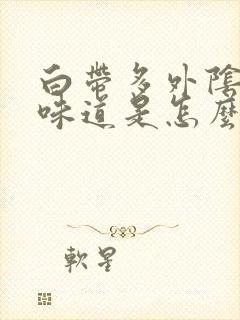 白帶多外陰
味道是怎麼
軟星